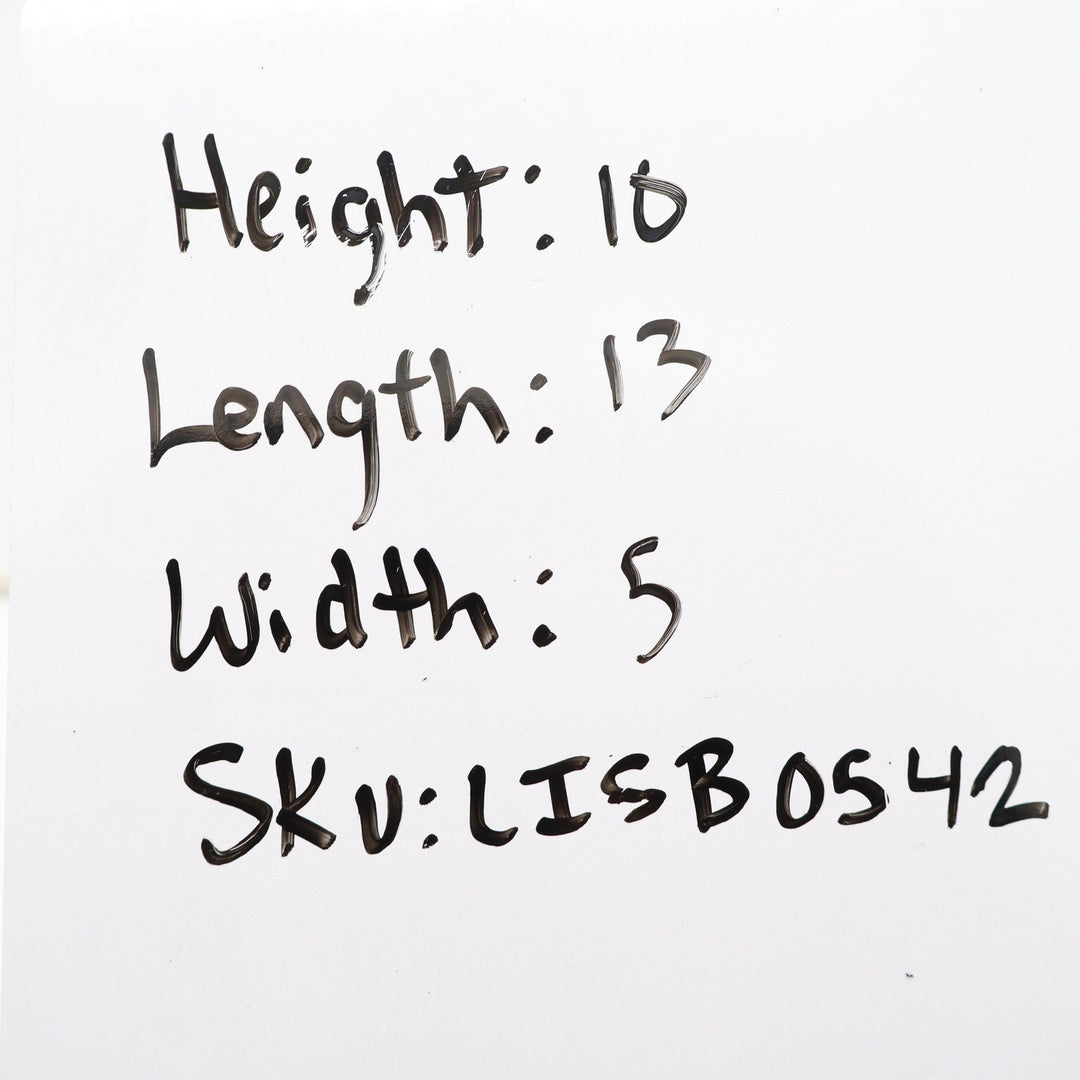 Height: 10
Length: 13
Width: 5
SKU: LISB0542